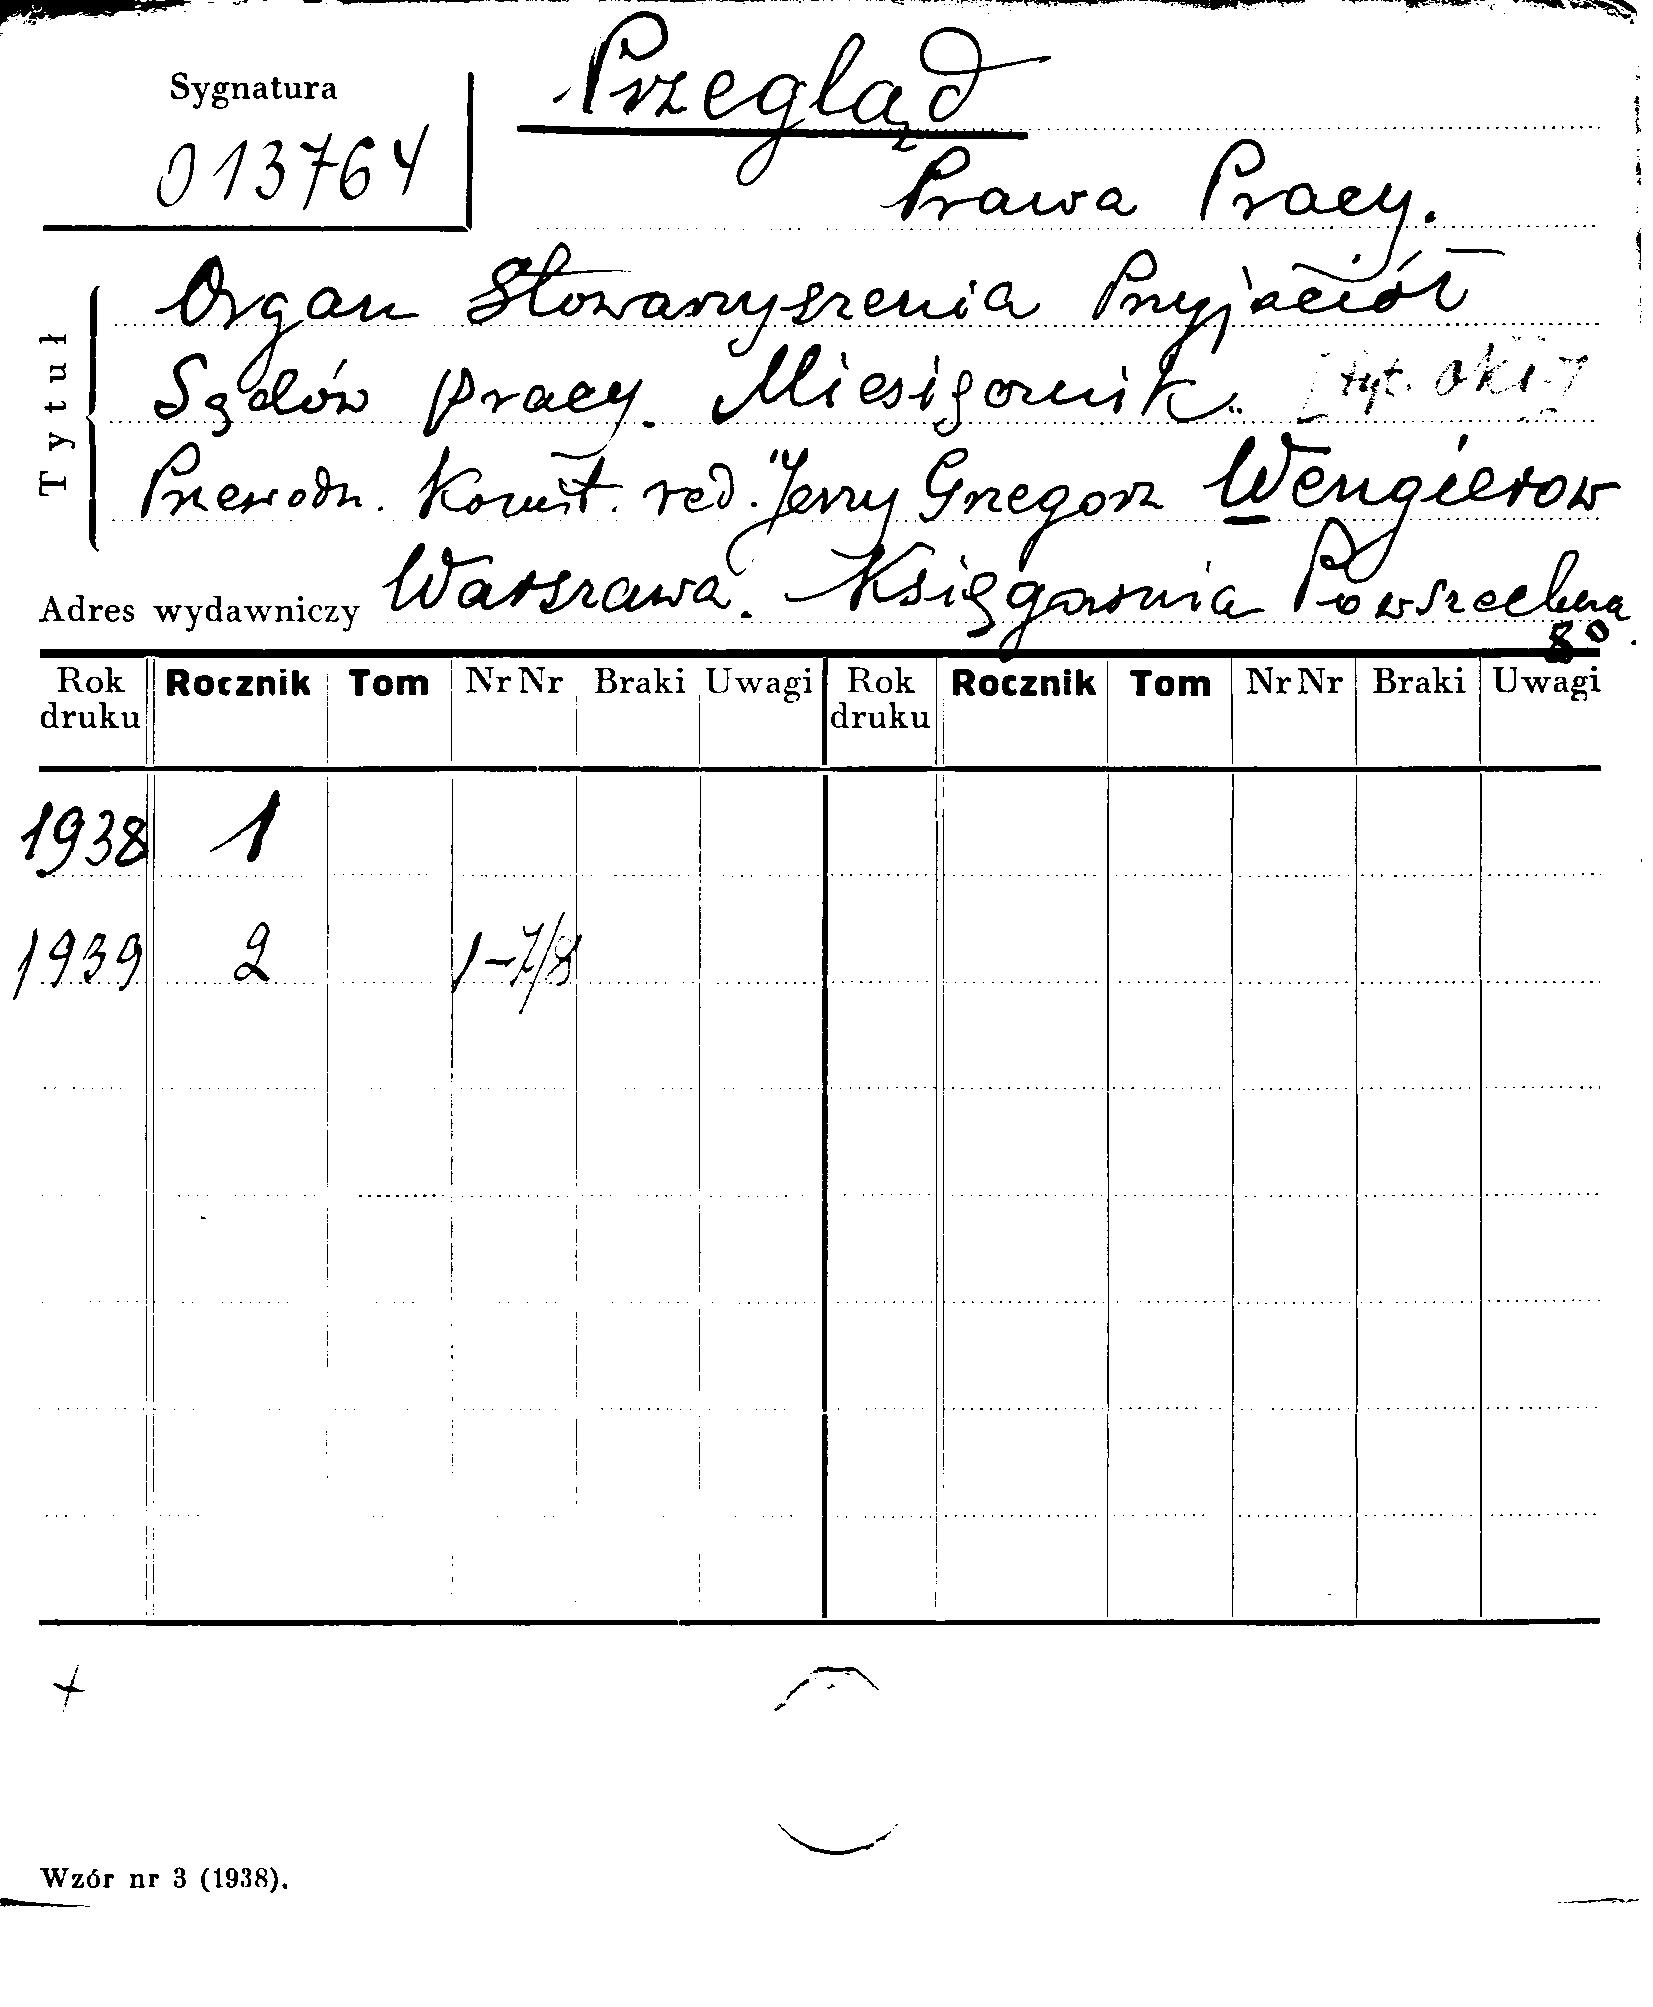 Sygnatura
013764
Przegląd
Prawa Pracy.
Tytuł
Organ Stowarzyszenia Przyjaciół
Sądów Pracy. Miesięcznik. [tyt. okł.]
Przewodn. Komit. red. Jerzy Grzegorz Wengierow
Adres wydawniczy Warszawa. Księgarnia Powszechna
8º.
Rok druku Rocznik Tom Nr Nr Braki Uwagi Rok druku Rocznik Tom Nr Nr Braki Uwagi
1938 1
1939 2 1-7/8
Wzór nr 3 (1938).